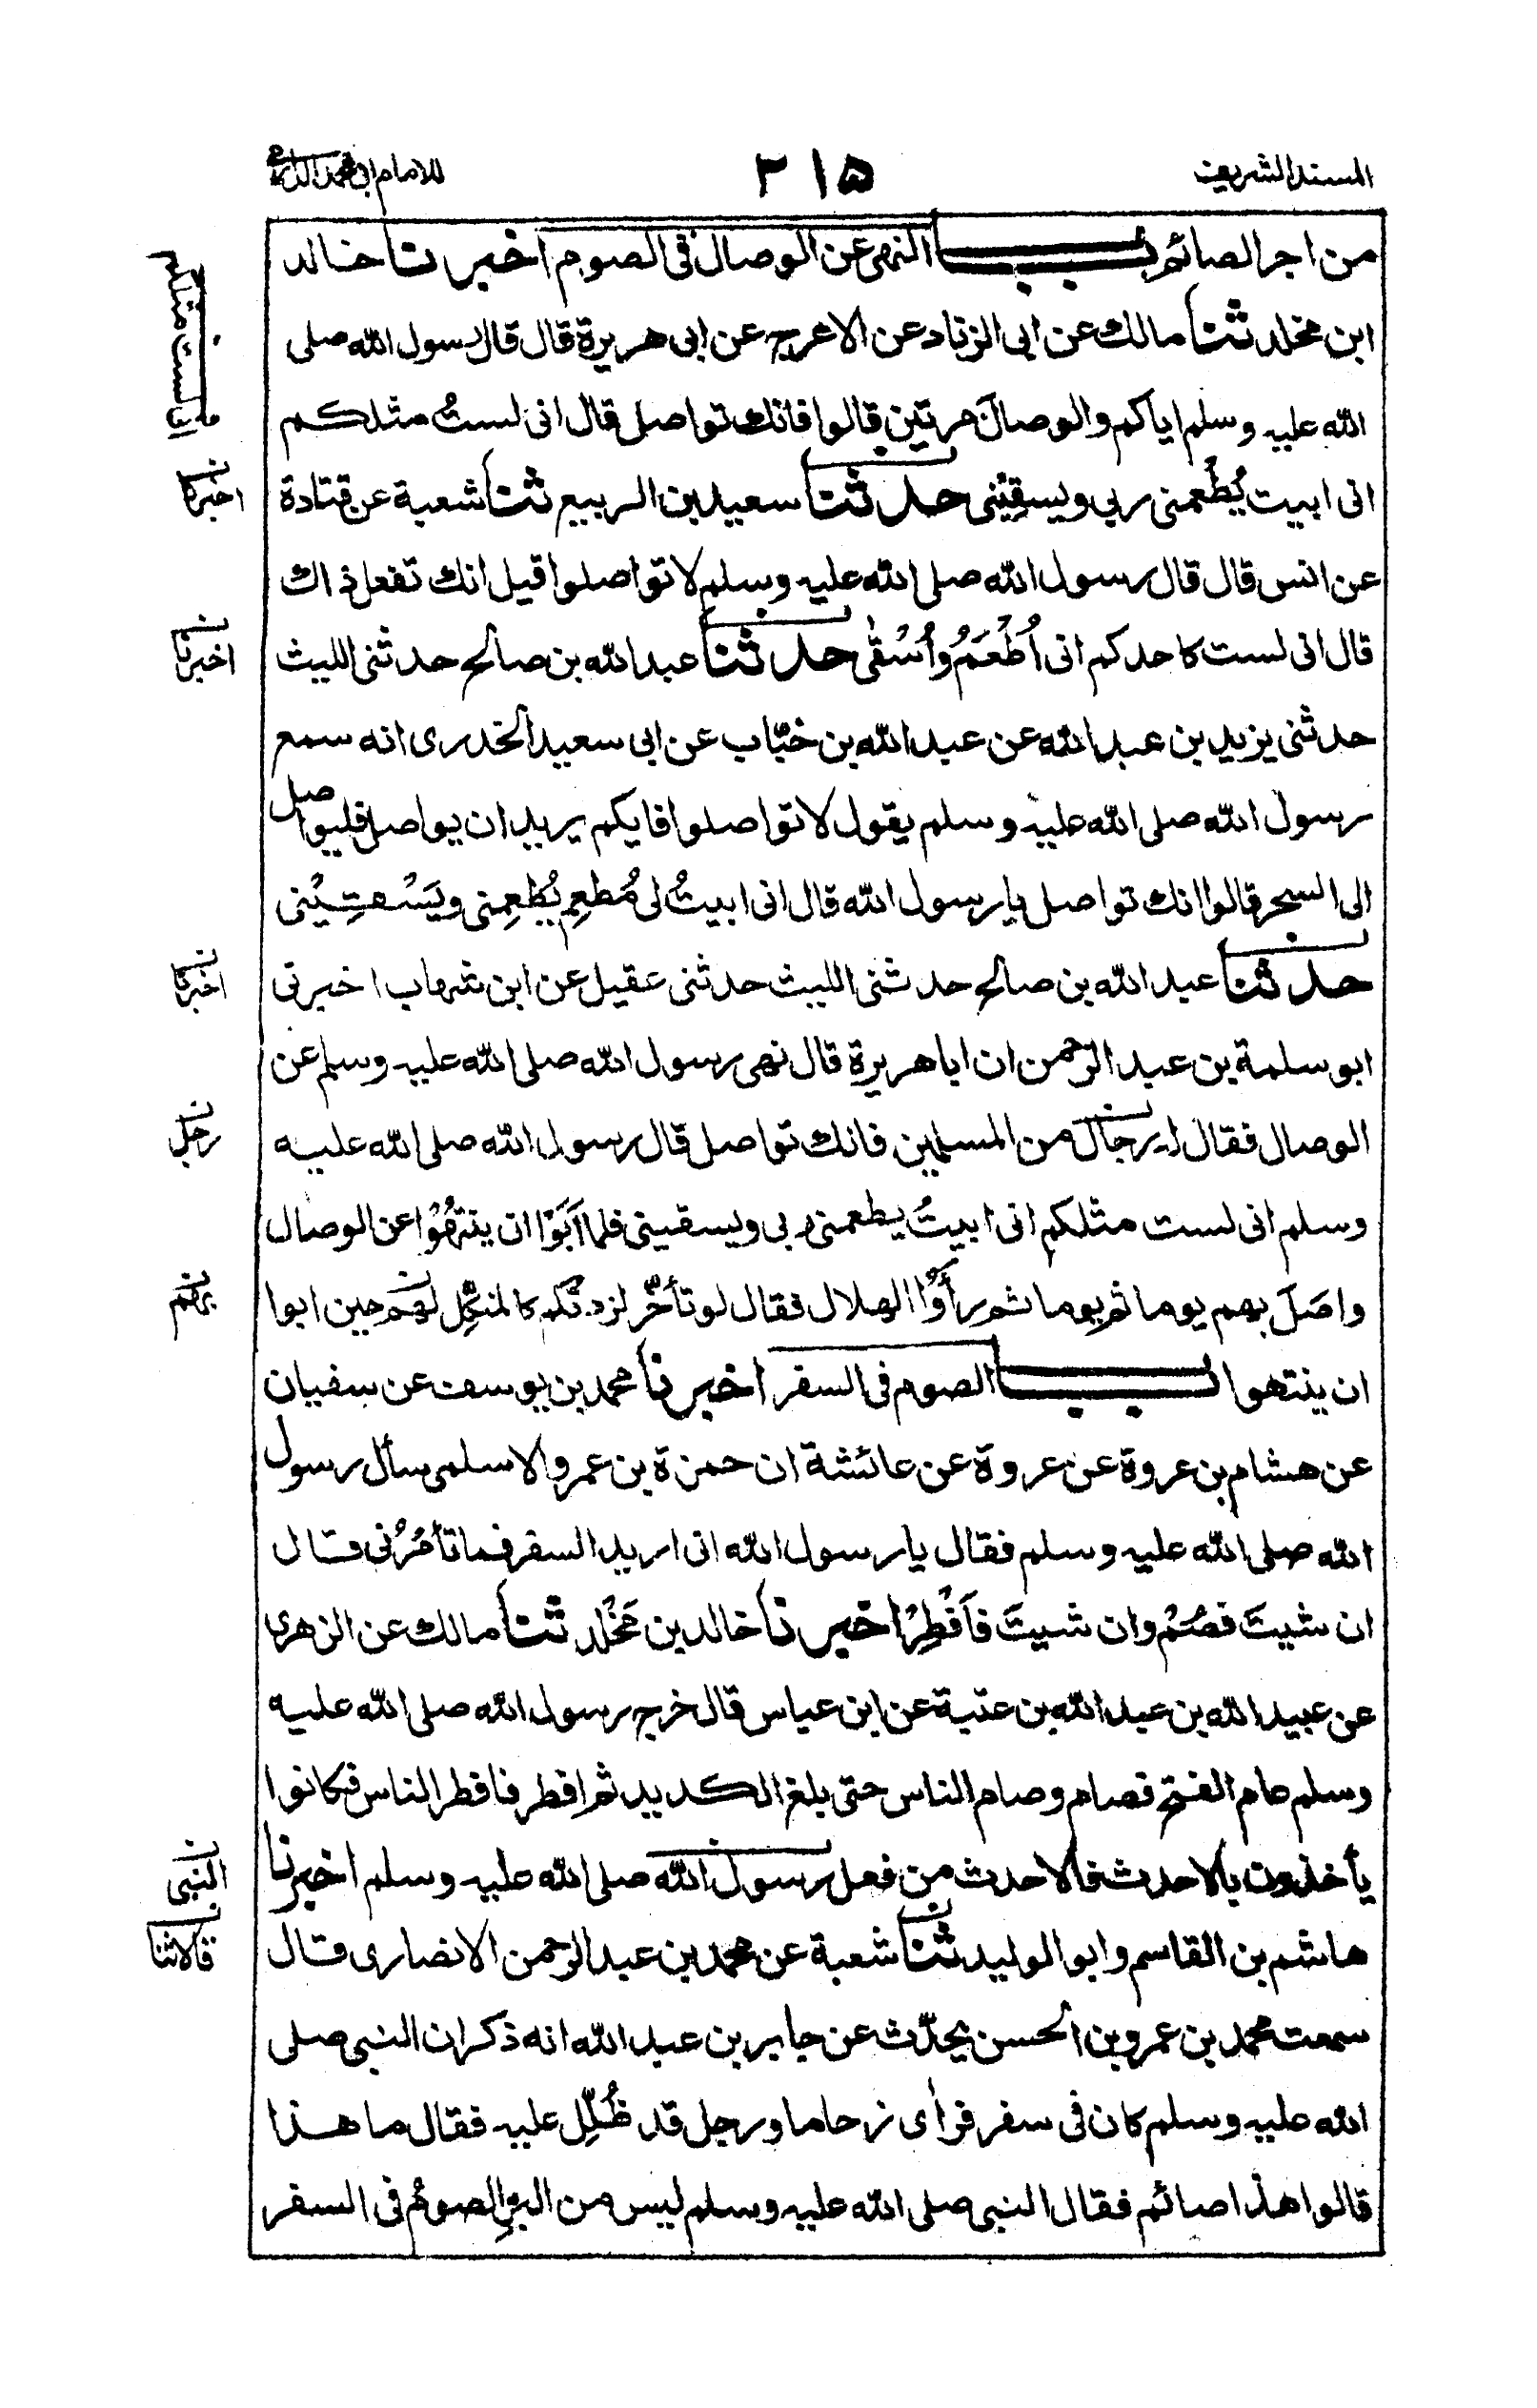 المسند الشريف ٢١٥ للامام ابي محمد الدارمي
من اجر الصائم باب النهي عن الوصال في الصوم اخبرنا خالد
ابن مخلد ثنا مالك عن ابي الزناد عن الاعرج عن ابي هريرة قال قال رسول الله صلى
الله عليه وسلم اياكم والوصال مرتين قالوا فانك تواصل قال اني لستُ مثلكم
اني ابيت يُطْعمني ربي ويسقِيْني حدثنا سعيد بن الربيع ثنا شعبة عن قتادة
عن انس قال قال رسول الله صلى الله عليه وسلم لا تواصلوا قيل انك تفعل ذاك
قال اني لست كاحدكم اني اُطْعَمُ واُسْقٰى حدثنا عبد الله بن صالح حدثني الليث
حدثني يزيد بن عبد الله عن عبد الله بن خبّاب عن ابي سعيد الخدري انه سمع
رسول الله صلى الله عليه وسلم يقول لا تواصلوا فايكم يريد ان يواصل فليواصل
الى السحر قالوا انك تواصل يا رسول الله قال اني ابيتُ لي مُطعِم يُطعِمني ويَسْقِيْني
حدثنا عبد الله بن صالح حدثني الليث حدثني عقيل عن ابن شهاب اخبرني
ابو سلمة بن عبد الرحمن ان ابا هريرة قال نهى رسول الله صلى الله عليه وسلم عن
الوصال فقال له رجال من المسلمين فانك تواصل قال رسول الله صلى الله عليه
وسلم اني لست مثلكم اني ابيتُ يطعمني ربي ويسقيني فلما اَبَوْا ان ينتهُوْا عن الوصال
واصَلَ بهم يوما ثم يوما ثم رأَوُا الهلال فقال لو تأخّر لزدتكم كالمنكِّل لهم حين ابوا
ان ينتهوا باب الصوم في السفر اخبرنا محمد بن يوسف عن سفيان
عن هشام بن عروة عن عروة عن عائشة ان حمزة بن عمرو الاسلمي سأل رسول
الله صلى الله عليه وسلم فقال يا رسول الله اني اريد السفر فما تأمُرُني قال
ان شيتَ فصُمْ وان شيتَ فاَفْطِرْ اخبرنا خالد بن مَخْلد ثنا مالك عن الزهري
عن عبيد الله بن عبد الله بن عتبة عن ابن عباس قال خرج رسول الله صلى الله عليه
وسلم عام الفتح فصام وصام الناس حتى بلغ الكديد ثم افطر فافطر الناس فكانوا
يأخذون بالاحدث فالاحدث من فعل رسول الله صلى الله عليه وسلم اخبرنا
هاشم بن القاسم وابو الوليد ثنا شعبة عن محمد بن عبد الرحمن الانصاري قال
سمعت محمد بن عمرو بن الحسن يحدّث عن جابر بن عبد الله انه ذكر ان النبي صلى
الله عليه وسلم كان في سفر فرأى زحاما ورجل قد ظُلِّل عليه فقال ما هذا
قالوا هذا صائم فقال النبي صلى الله عليه وسلم ليس من البِرِ الصومُ في السفر
لست مثلكم
اخبرنا
اخبرنا
اخبرنا
رجل
بهم
النبي
قالا ثنا